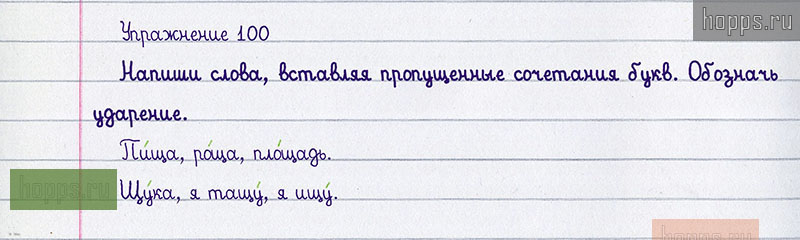 hopps.ru
Упражнение 100
Напиши слова, вставляя пропущенные сочетания букв. Обозначь
ударение.
Пи́ща, ро́ща, пло́щадь.
Щу́ка, я тащу́, я ищу́.
hopps.ru
hopps.ru